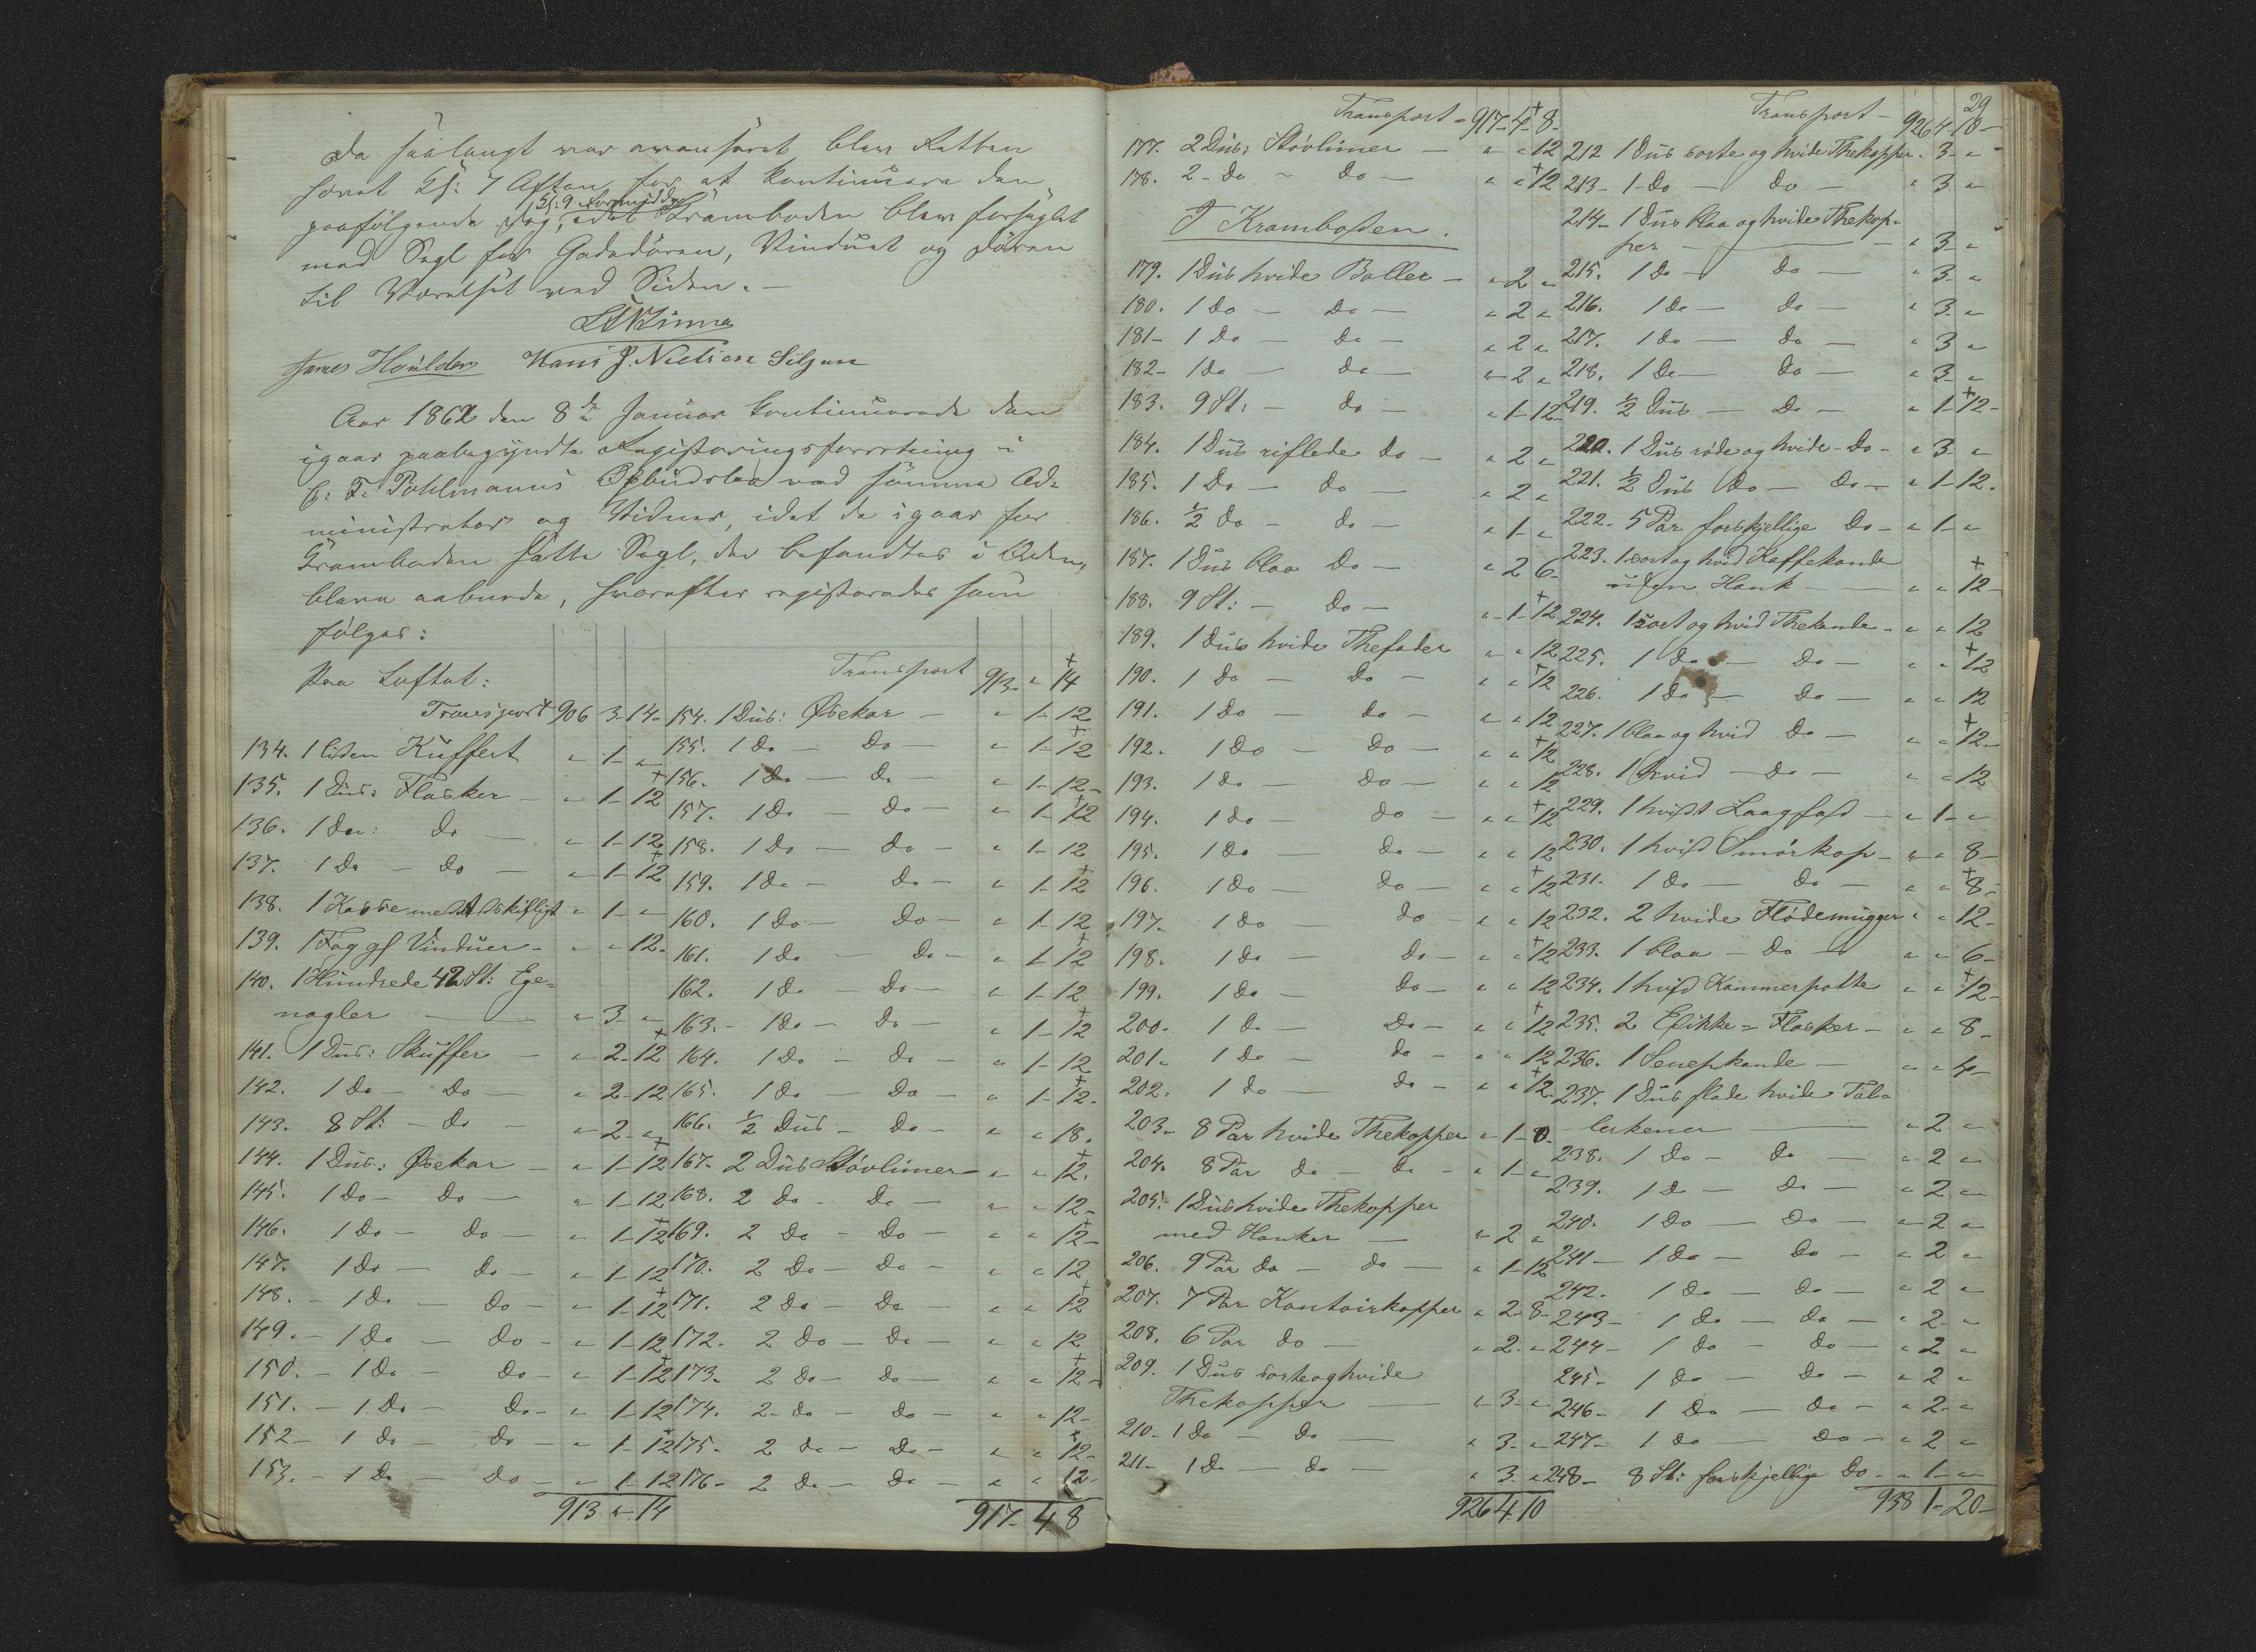 Da saalangt var avanseret blev Retten
hævet Kl: 7 Aften for at kontinuere den
Kl: 9 Formiddag
paafølgende Dag, idet Kramboden blev forseglet
med Segl for Gadedøren, Vinduet og Døren
til Værelset ved Siden.-
James Houlder Hans J. Nielsen Siljan
Aar 1862 den 8de Januar kontinuerede den
igaar paabegyndte Registreringsforretning i
C: F. Pohlmanns Opbudsbo ved samme Ad-
ministrator og Vidner, idet de igaar for
Kramboden satte Segl, der befandtes i Orden,
bleve aabnede, hvorefter registreredes som
følger:
Paa Loftet:
Transport 906 3- 14-
134. 1 liden Kuffert - " 1- "
135. 1 Dus: Flasker - " 1- 12
136. 1 Do: do - " 1- 12
137. 1 Do - do - " 1- 12
138. 1 Kasse med Adskilligt " 1- "
139. 1 Fag gl Vinduer - " " 12.
140. 1 Hundrede 42 St: Ege-
nagler - " 3- "
141. 1 Dus: Skuffer - " 2- 12
142. 1 Do - Do - " 2- 12
143. 8 St: - do - " 2- "
144. 1 Dus: Øsekar - " 1- 12
145. 1 Do - do - " 1- 12
146. 1 Do - do - " 1- 12
147. 1 Do - do - " 1- 12
148. - 1 Do - do - " 1- 12
149. - 1 Do - do - " 1- 12
150. - 1 Do - do - " 1- 12
151. - 1 Do - do - " 1- 12
152 - 1 do - do - " 1- 12
153. - 1 Do - do - " 1- 12
913 " 14
Transport 913- " 14
154. 1 Dus: Øsekar - " 1- 12
155. 1 do - do - " 1- 12
156. 1 Do - do - " 1- 12-
157. 1 Do - do - " 1- 12
158. 1 Do - do - " 1- 12
159. 1 Do - do - " 1- 12
160. 1 Do - do - " 1- 12
161. 1 Do - do - " 1- 12
162. 1 Do - do - " 1- 12
163. - 1 Do - do - " 1- 12
164. 1 Do - do - " 1- 12
165. 1 Do - Do - " 1- 12.
166. ½ Dus - do - " " 18.
167. 2 Dus Støvlimer - " " 12.
168. 2 do - do - " " 12-
169. 2 do - do - " " 12-
170. 2 Do - do - " " 12
171. 2 Do - Do - " " 12
172. 2 Do - do - " " 12
173. 2 Do - do - " " 12-
174. 2 - do - do - " " 12-
175. 2 do - do - " " 12-
176 - 2 do - do - " " 12-
917- 4 8
Transport - 917- 4- 8-
177. 2 Dus: Støvlimer - " " 12
178. 2 - do - do - " " 12
I Kramboden.
179. 1 Dus hvide Boller - " 2 "
180. 1 do - do - " 2 "
181 - 1 Do - do - " 2 "
182 - 1 do - do - " 2 "
183. 9 St: - do - " 1- 12
184. 1 Dus riflede do - " 2 "
185. 1 Do - do - " 2 "
186. ½ do - do - " 1- "
187. 1 Dus blaa Do - " 2 6-
188. 9 St: - do - " 1- 12
189. 1 Dus hvide Thefader " " 12
190. 1 do - do - " " 12
191. 1 do - do - " " 12
192. 1 do - do - " " 12
193. 1 do - do - " " 12
194. 1 do - do - " " 12
195. 1 do - do - " " 12
196. 1 do - do - " " 12
197. 1 do - do - " " 12
198. 1 do - do - " " 12
199. 1 do - do - " " 12
200. 1 do - do - " " 12
201 - 1 do - do - " " 12
202. 1 do - do - " " 12
203 - 8 Par hvide Thekopper " 1- 8-
204. 8 Par do - do - " 1- "
205. 1 Dus hvide Thekopper
med Hanker - " 2 "
206. 9 Par do - do - " 1- 12
207. 7 Par Kontoirkopper " 2- 8-
208. 6 Par do - " 2- "
209. 1 Dus sorte og hvide
Thekopper - " 3- "
210. 1 Do - do " 3- "
211 - 1 Do - do - " 3- "
926 4 10
29
Transport - 926 4- 10-
212 1 Dus sorte og hvide Thekopper " 3- "
213 - 1 - do - do - " 3 "
214 - 1 Dus blaa og hvide Thekop-
per - " 3- "
215. 1 Do - do - " 3- "
216. 1 do - do - " 3- "
217. 1 do - do - " 3 "
218. 1 do - do - " 3- "
219. ½ Dus - do - " 1- 12-
220. 1 Dus røde og hvide - do - " 3- "
221. ½ Dus Do - do - " 1- 12.
222. 5 Par forskjellige do - " 1- "
223. 1 sort og hvid Kaffekande
uden Hank - " " 12-
224. 1 sort og hvid Thekande - " " 12
225. 1 do - do - " " 12
226. 1 do - do - " " 12
227. 1 blaa og hvid do - " " 12-
228. 1 hvid - do - " " 12
229. 1 hvidt Laagfad - " 1- "
230. 1 hvid Smørkop - " " 8-
231. 1 do - do - " " 8-
232. 2 hvide Flødemugger " " 12-
233. 1 blaa - do - " " 6-
234. 1 hvid Kammerpotte " " 12-
235. 2 Edikke-Flasker - " " 8-
236. 1 Senepkande - " " 4-
237. 1 Dus flade hvide Tal-
lerkener - " 2 "
238. 1 do - do - " 2 "
239. 1 do - do - " 2 "
240. 1 do - do - " 2 "
241 - 1 do - do - " 2 "
242. 1 do - do - " 2 "
243 - 1 do - do - " 2- "
244 - 1 do - do - " 2 "
245 - 1 do - do - " 2 "
246 - 1 do - do - " 2- "
247 - 1 do - do - " 2 "
248 - 8 St: forskjellige do - " 1- "
938 1- 20-